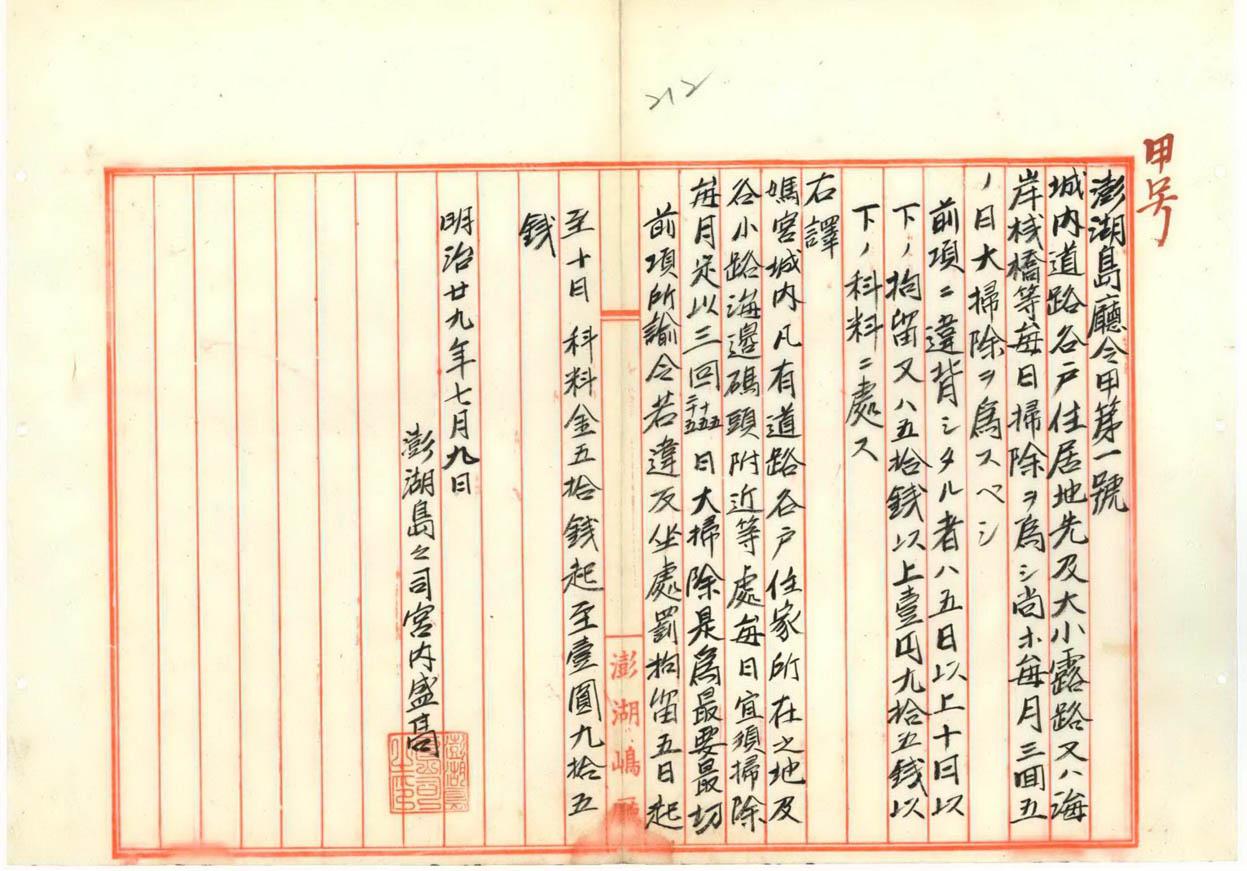 212
甲号
澎湖島廳令甲第一號
城内道路各戸住居地先及大小露路又ハ海
岸桟橋等毎日掃除ヲ為シ尚ホ毎月三回五
ノ日大掃除ヲ為スベシ
前項ニ違背シタル者ハ五日以上十日以
下ノ拘留又ハ五拾銭以上壹円九拾五銭以
下ノ科料ニ處ス
右譯
媽宮城内凡有道路各戸住家所在之地及
各小路海邉碼頭附近等處毎日宜須掃除
毎月定以三回 五十五二十五 日大掃除是為最要最切
前項所諭令若違反坐處罰拘留五日起
至十日 科料金五拾銭起至壹圓九拾五
銭
明治廿九年七月九日
澎湖島々司宮内盛高
澎湖嶋廳